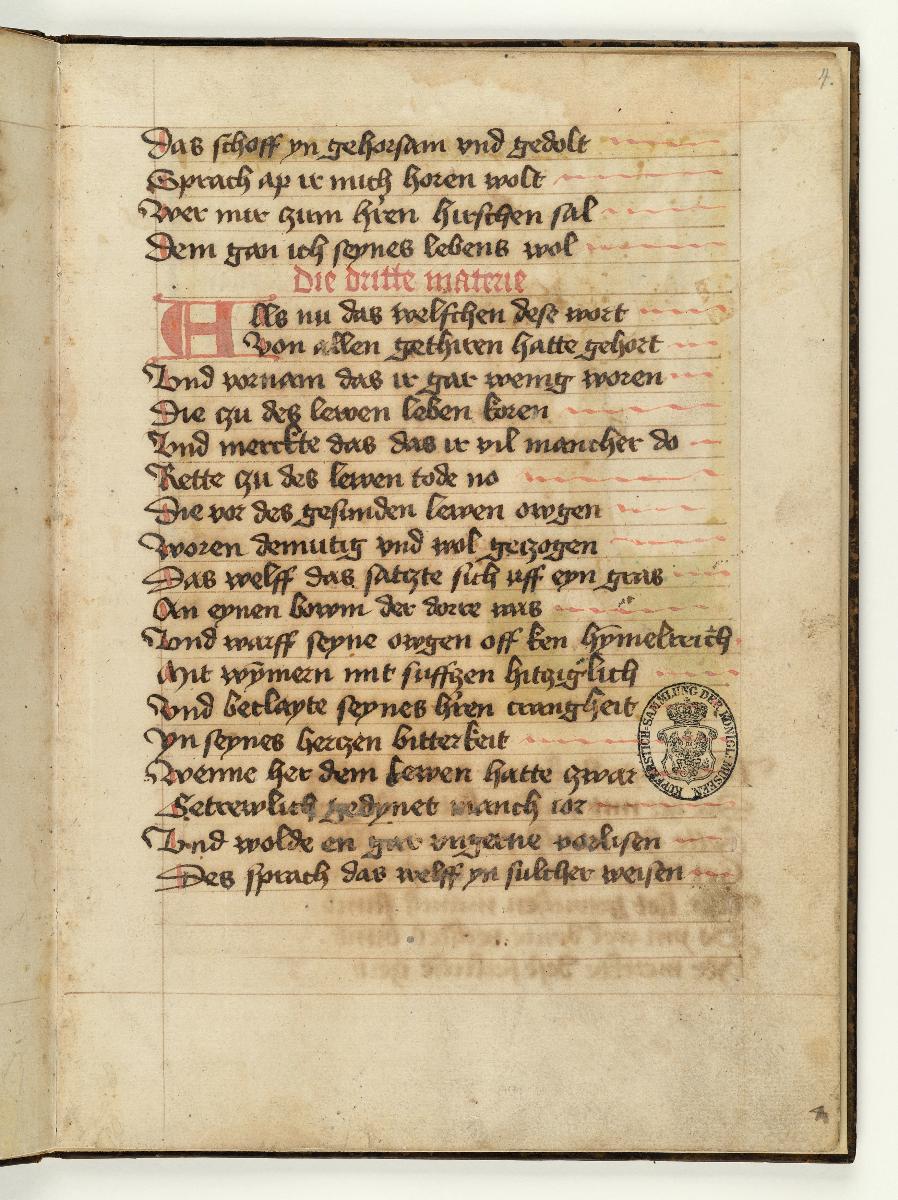 4.
Das schoff yn gehorsam vnd gedolt
Sprach ap ir mich horen wolt
Wer mir czum hren hirschen sal
Dem gan ich seynes lebens wol
Die dritte materie
Als nu das welfchen dese wort
Von allen gethiren hatte gehort
Vnd vornam das ir gar wenig woren
Die czu des lewen leben koren
Vnd merckte das das ir vil mancher do
Rette czu des lewen tode no
Die vor des gesunden lewen owgen
Woren demutig vnd wol geczogen
Das welff das satczte sich uff eyn gras
An eynen bowm der dorre was
Vnd warff seyne owgen off ken hymelreich
Mit wymern mit suffczen hitcziglich
Vnd beclayte seynes hren crangheit
Yn seynes hertczen bitterkeit
Wenne her dem lewen hatte czwar
Getrewlich gedynet manch ior
Vnd wolde en gar vngerne vorlisen
Des sprach das welff yn sulcher weisen
KUPFERSTICH-SAMMLUNG DER KÖNIGL. MUSEEN